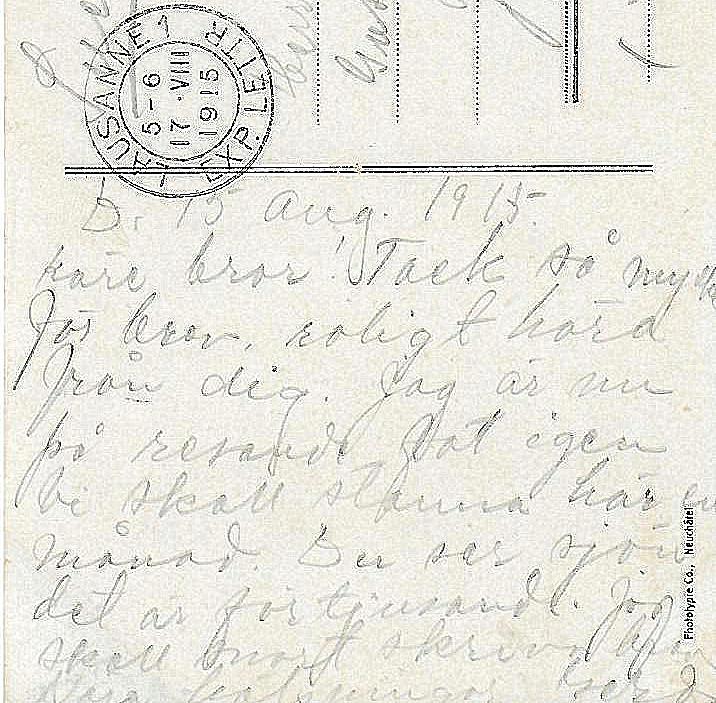 LAUSANNE 1
EXP. LETTR
5-6
17 · VIII
1915
D. 15 Aug. 1915.
käre bror! Tack så myck
för brev, roligt höra
från dig. Jag är nu
på resande fot igen
Vi skall stanna här en
månad. Du ser sjön
det är förtjusande. Jag
skall snart skriva
Kära hälsningar Gerd
Phototypie Co., Neuchâtel